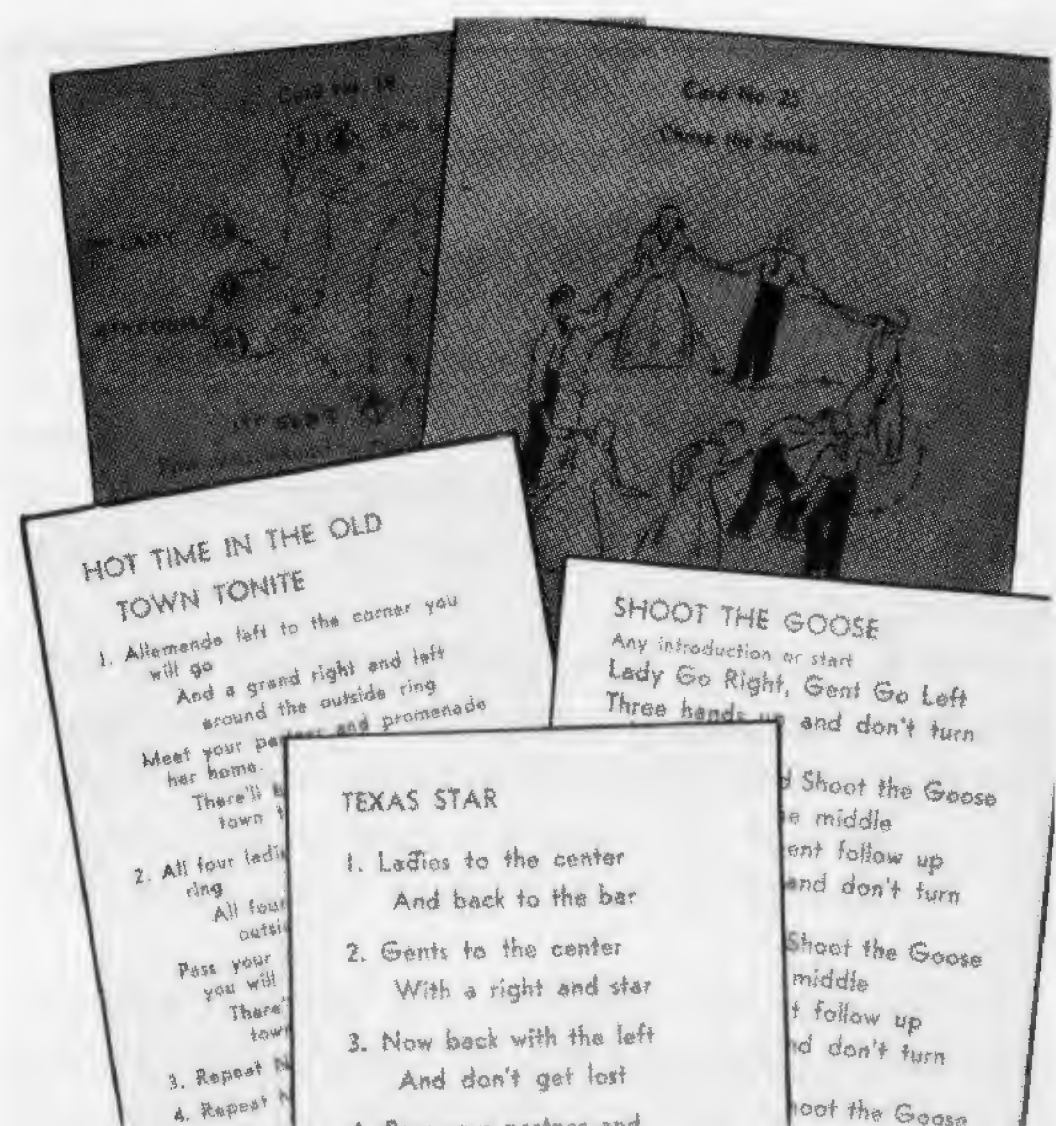 Card No. 18
Card No. 25
Chase the Snake
LADY
HOT TIME IN THE OLD
TOWN TONITE
1. Allemande left to the corner you
will go
And a grand right and left
around the outside ring
Meet your and promenade
her home.
There'll
town
2. All four
ring
All four
Pass your
you will
3. Repeat
4. Repeat
SHOOT THE GOOSE
Any introduction or start
Lady Go Right, Gent Go Left
Three hands up and don't turn
Shoot the Goose
middle
follow up
and don't turn
Shoot the Goose
middle
follow up
don't turn
the Goose
TEXAS STAR
1. Ladies to the center
And back to the bar
2. Gents to the center
With a right and star
3. Now back with the left
And don't get lost
and